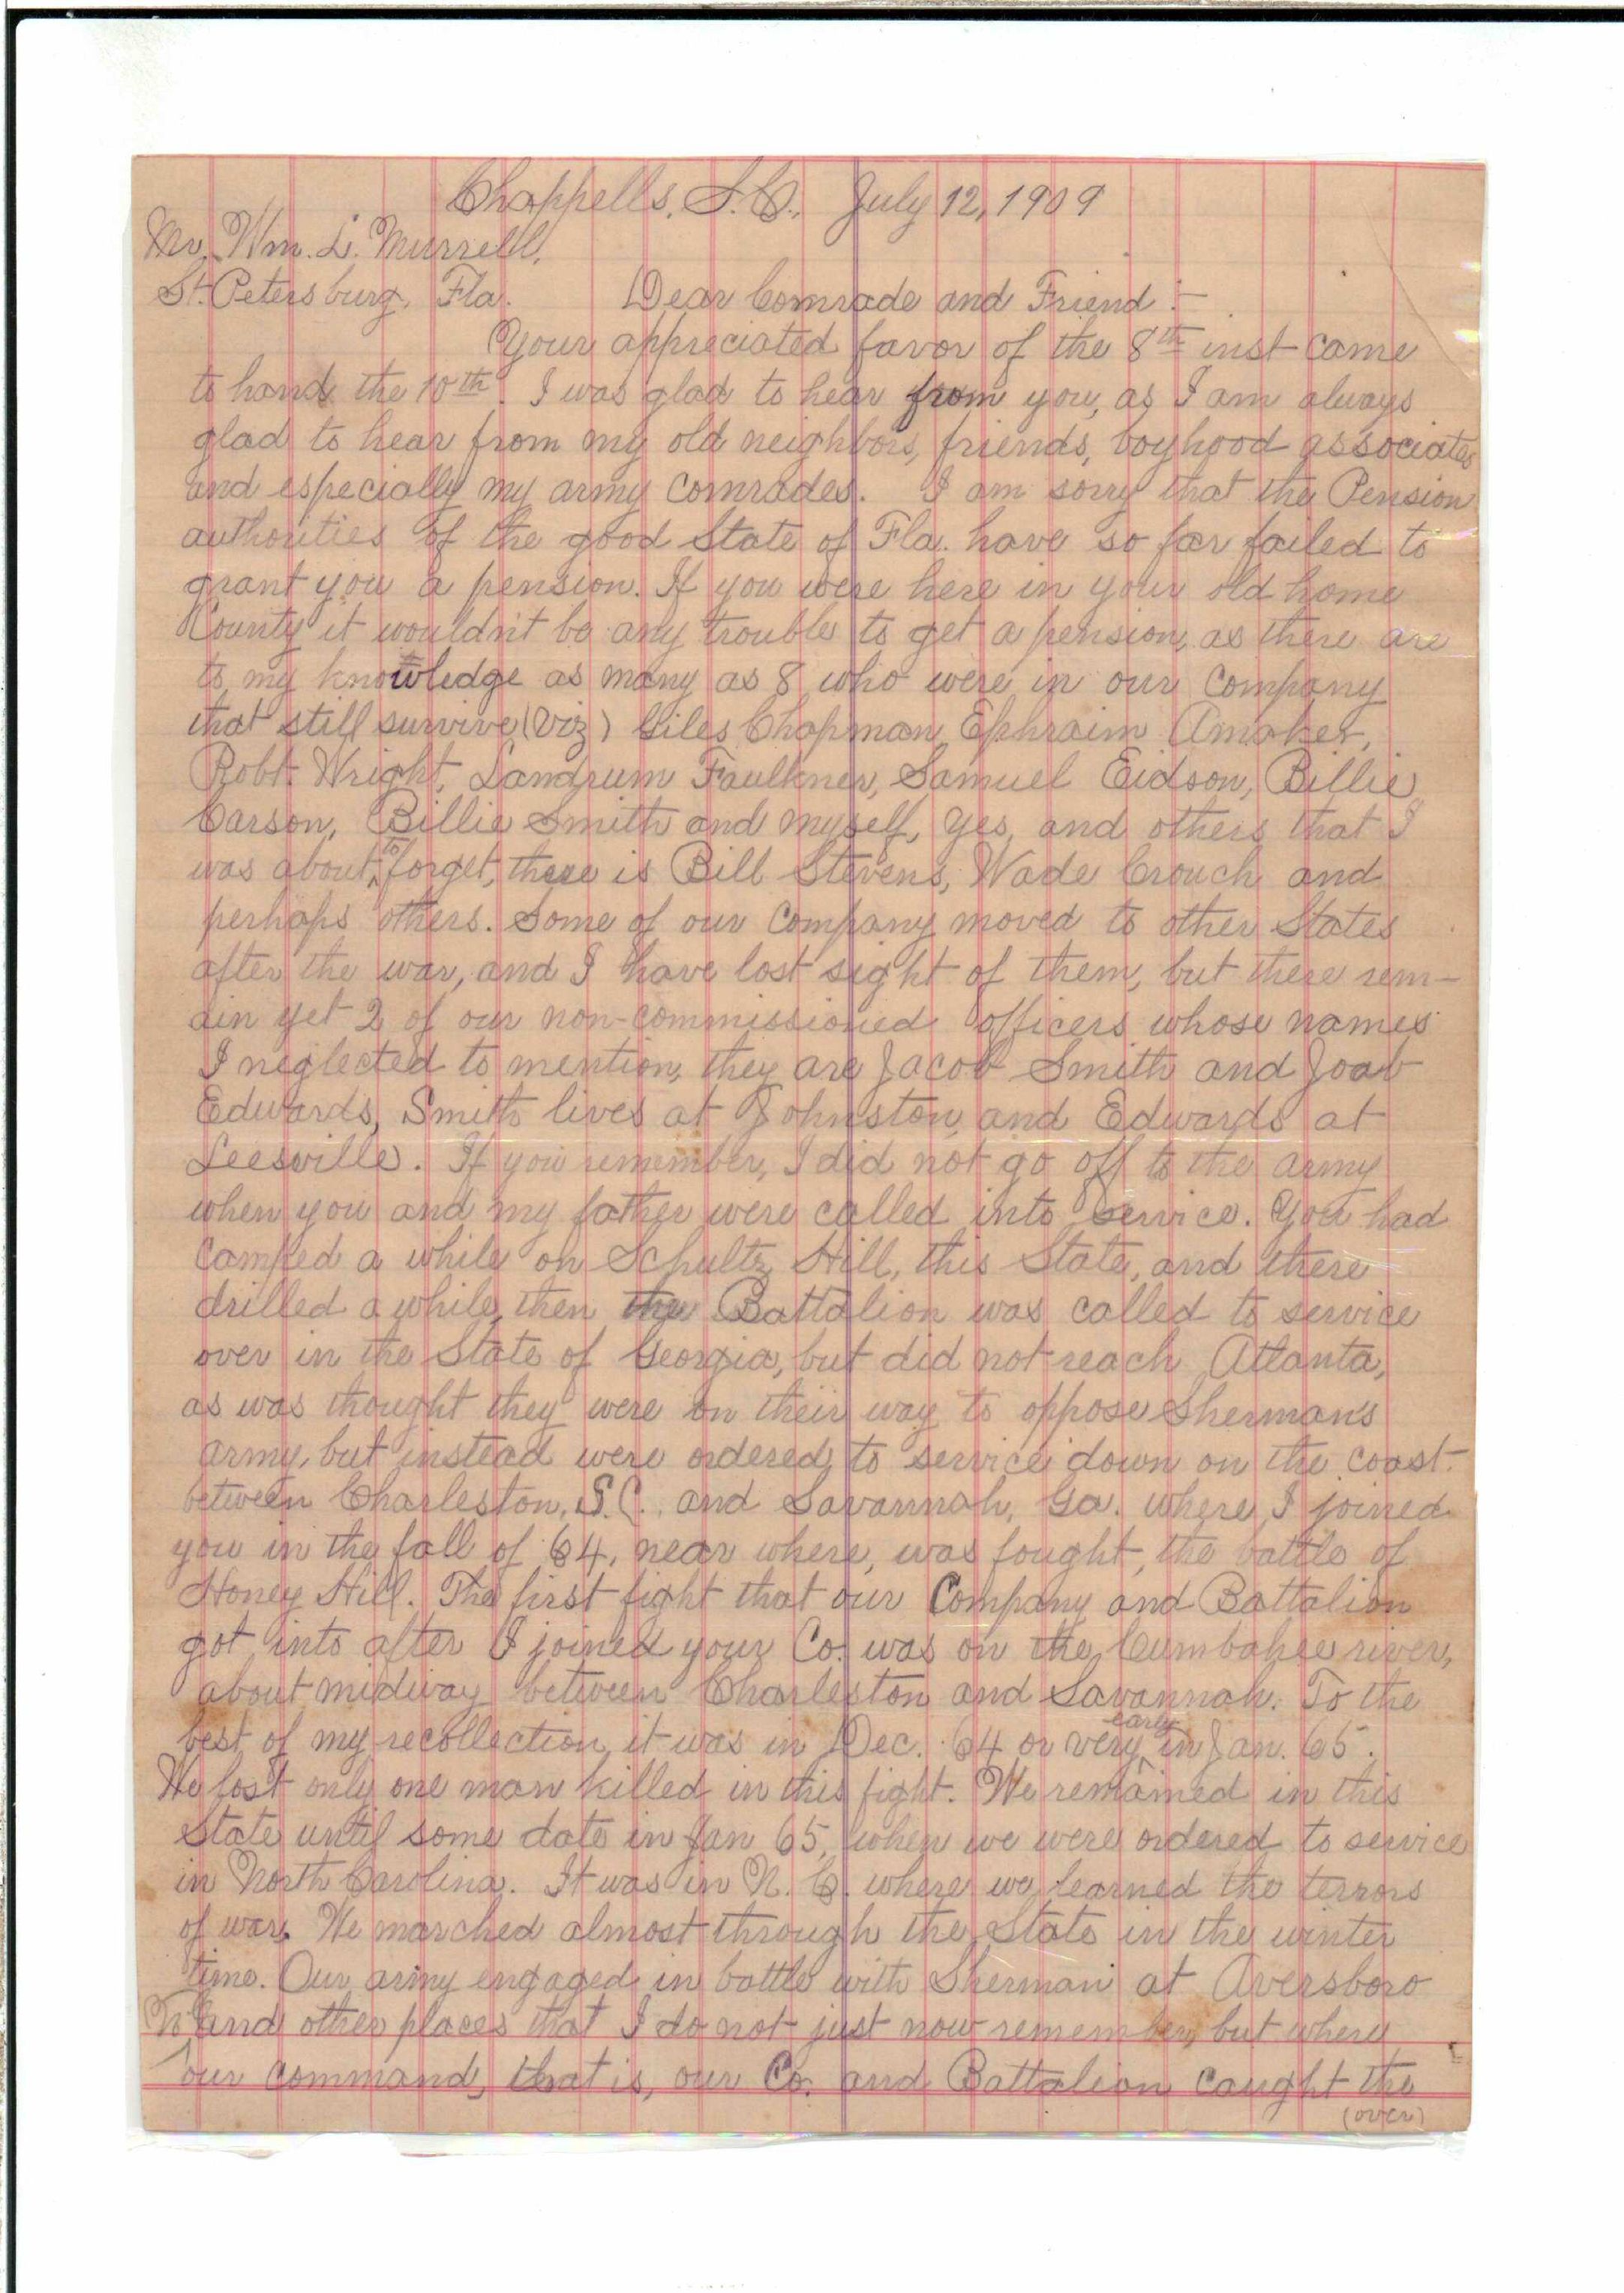 Chappells, S.C., July 12, 1909
Mr. Wm. L. Murrell,
St. Petersburg, Fla. Dear Comrade and Friend :-
Your appreciated favor of the 8th inst came
to hand the 10th. I was glad to hear from you, as I am always
glad to hear from my old neighbors, friends, boyhood associates
and especially my army comrades. I am sorry that the Pension
authorities of the good State of Fla. have so far failed to
grant you a pension. If you were here in your old home
County it wouldn't be any trouble to get a pension, as there are
to my knowledge as many as 8 who were in our Company
that still survive (viz) Giles Chapman, Ephraim Amaker,
Robt. Wright, Landrum Faulkner, Samuel Eidson, Billie
Carson, Billie Smith and myself, yes, and others that I
was about to forget, there is Bill Stevens, Wade Crouch and
perhaps others. Some of our Company moved to other States
after the war, and I have lost sight of them, but there rem-
ain yet 2 of our non-commissioned officers whose names
I neglected to mention, they are Jacob Smith and Joab
Edwards, Smith lives at Johnston, and Edwards at
Leesville. If you remember, I did not go off to the army
when you and my father were called into service. You had
camped a while on Schultz Hill, this State, and there
drilled a while, then the Battalion was called to service
over in the State of Georgia, but did not reach Atlanta,
as was thought they were on their way to oppose Sherman's
army, but instead were ordered to service down on the coast
between Charleston, S.C. and Savannah, Ga. where I joined
you in the fall of 64, near where, was fought, the battle of
Honey Hill. The first fight that our Company and Battalion
got into after I joined your Co. was on the Cumbahee river,
about midway between Charleston and Savannah. To the
best of my recollection, it was in Dec. 64 or very early in Jan. 65.
We lost only one man killed in this fight. We remained in this
State until some date in Jan 65, when we were ordered to service
in North Carolina. It was in N. C. where we learned the terrors
of war. We marched almost through the State in the winter
time. Our army engaged in battle with Sherman at Aversboro
N.C. and other places that I do not just now remember, but where
our command, that is, our Co. and Battalion caught the
(over)